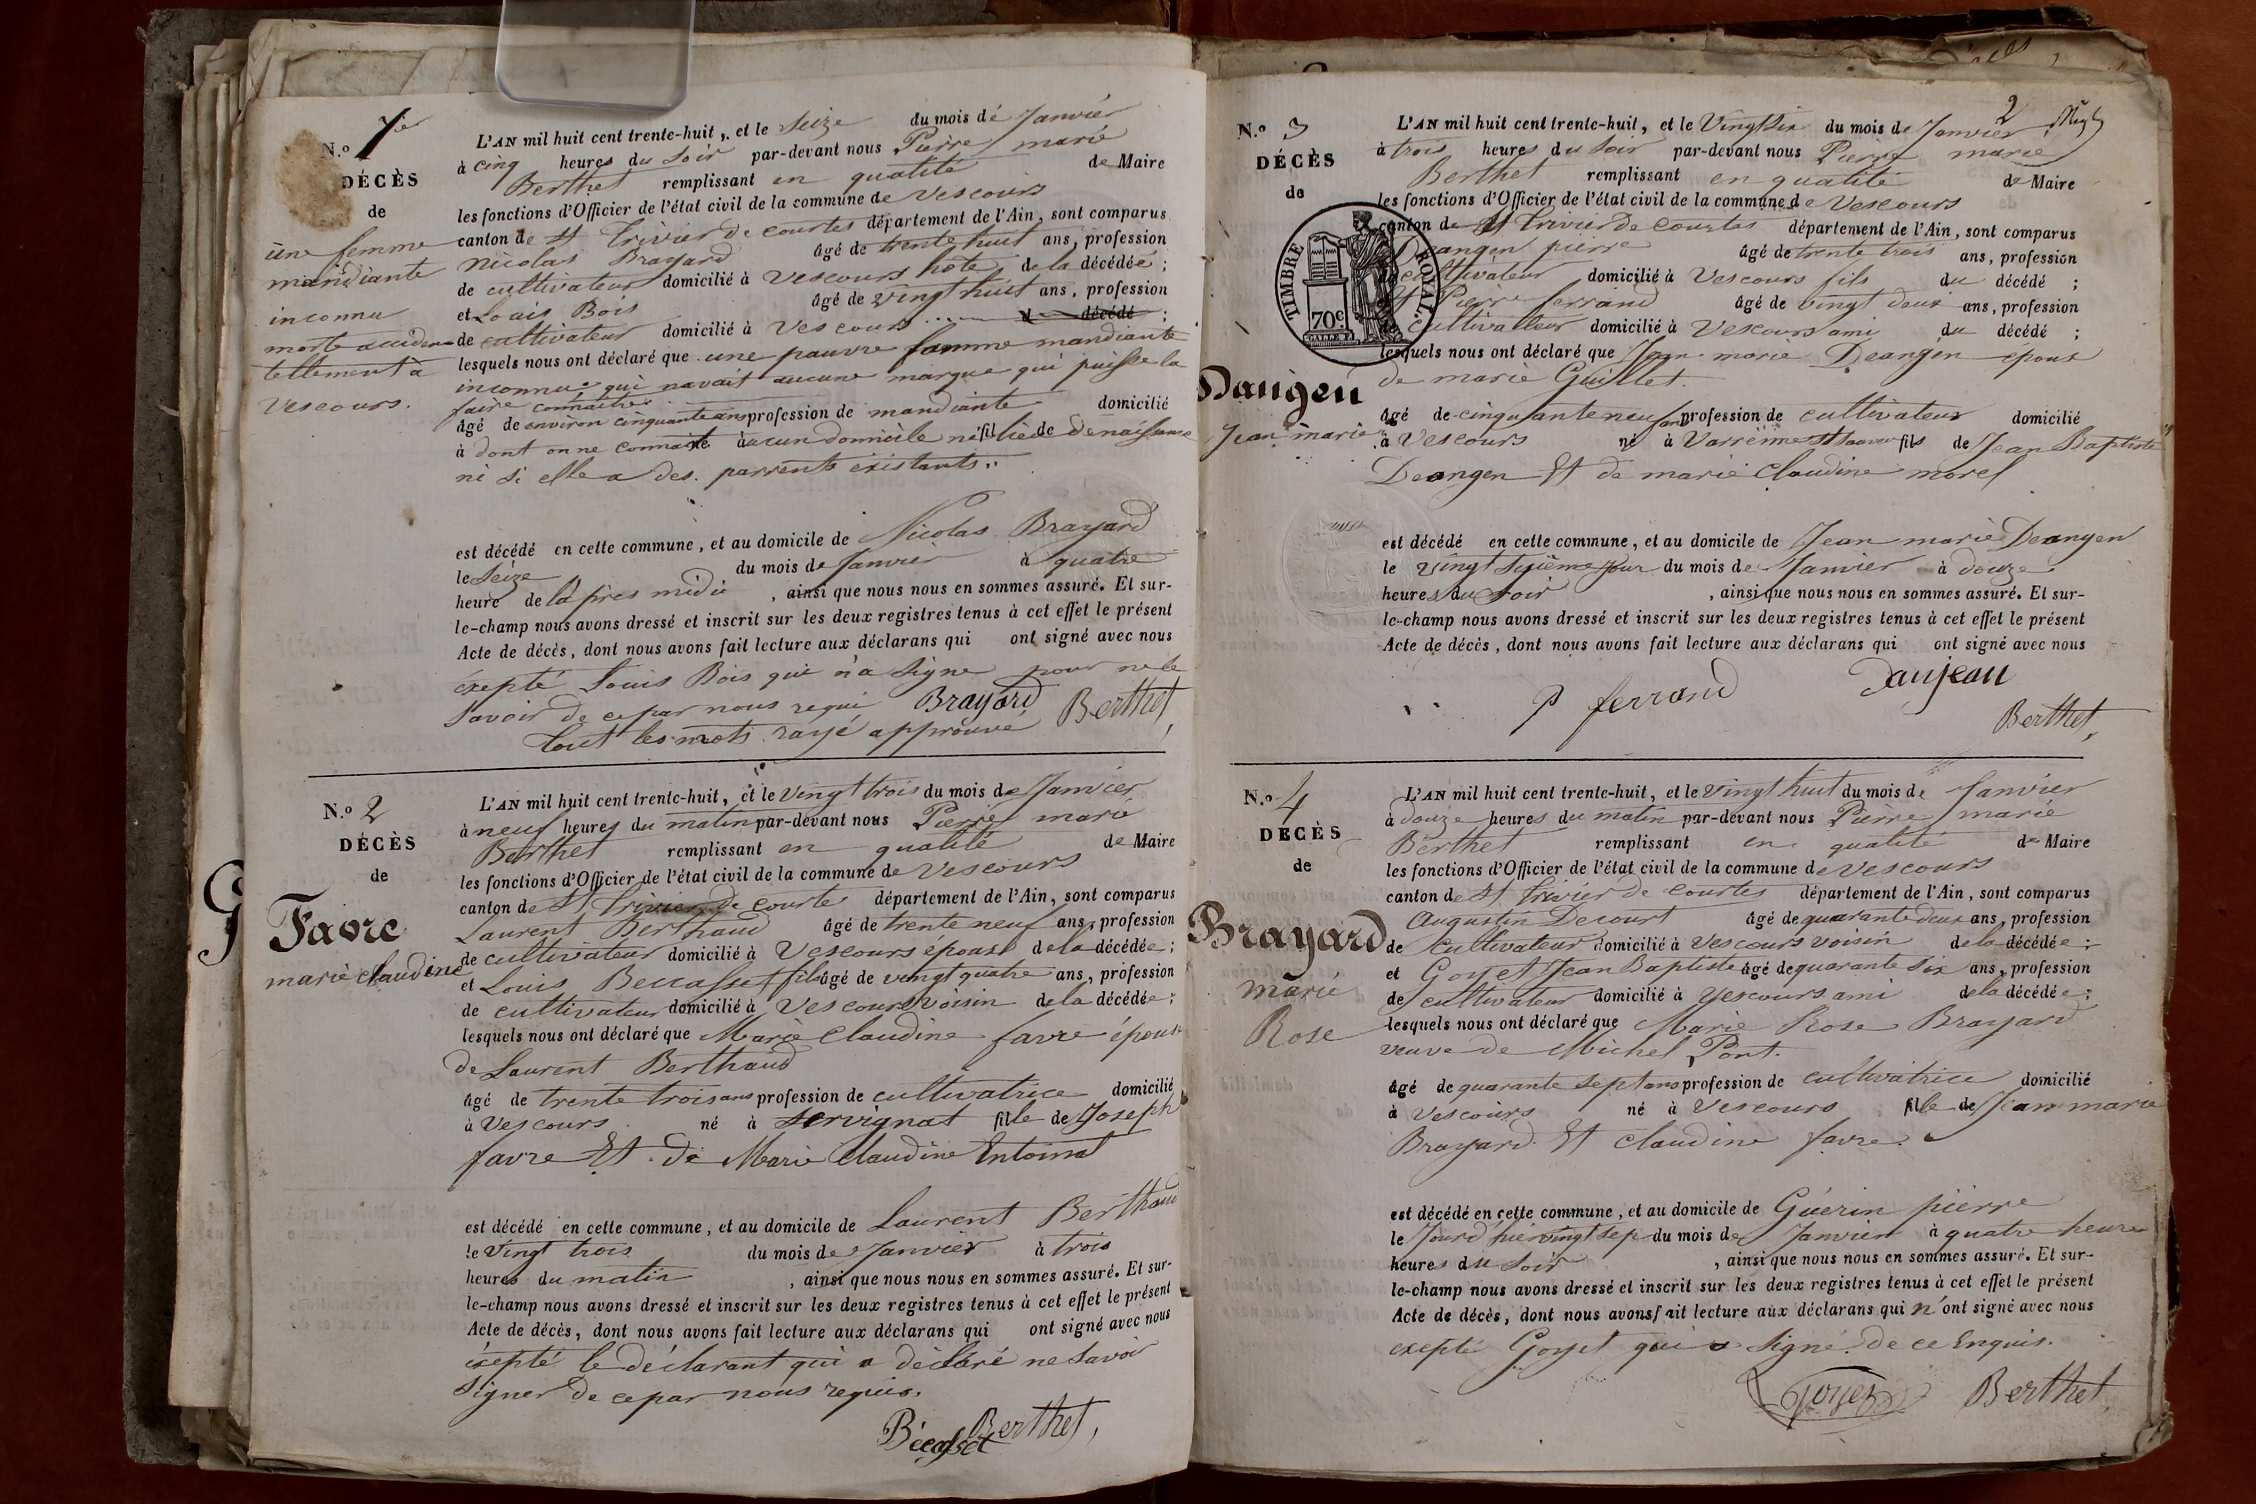 N.º 1er
DÉCÈS
de
une femme
mandiante
inconnu
morte acciden
tellement à
Vescours.
L'AN mil huit cent trente-huit, et le Seize du mois de Janvier
à cinq heures du Soir par-devant nous Pierre marie
Berthet remplissant en qualité de Maire
les fonctions d'Officier de l'état civil de la commune de Vescours
canton de St Trivier de courtes département de l'Ain, sont comparus
Nicolas Brayard âgé de trente huit ans, profession
de cultivateur domicilié à Vescours hote de la décédée ;
et Louis Bois âgé de Vingt huit ans, profession
de cultivateur domicilié à Vescours décédé ;
lesquels nous ont déclaré que une pauvre femme mandiante
inconnue qui navait aucune marque qui puisse la
faire connaitre
âgé de environ cinquante ans profession de mandiante domicilié
à dont on ne connait aucun domicile né fil de de naissance
ni si elle a des parrents existants.
est décédé en cette commune, et au domicile de Nicolas Brayard
le Seize du mois de Janvier à quatre
heure de la pres midi, ainsi que nous nous en sommes assuré. Et sur-
le-champ nous avons dressé et inscrit sur les deux registres tenus à cet effet le présent
Acte de décès, dont nous avons fait lecture aux déclarans qui ont signé avec nous
exepté Louis Bois qui n'a Signe pour ne le
Savoir de ce par nous requi Brayard Berthet
tout les mots rayé approuvé
N.º 2
DÉCÈS
de
Favre
marie claudine
L'AN mil huit cent trente-huit, et le Vingt trois du mois de Janvier
à neuf heures du matin par-devant nous Pierre marie
Berthet remplissant en qualité de Maire
les fonctions d'Officier de l'état civil de la commune de Vescours
canton de St Trivier de courtes département de l'Ain, sont comparus
Laurent Berthaud âgé de trente neuf ans, profession
de cultivateur domicilié à Vescours epoux de la décédée ;
et Louis Beccasset fils âgé de vingt quatre ans, profession
de cultivateur domicilié à Vescours voisin de la décédée ;
lesquels nous ont déclaré que Marie claudine favre épouse
de Laurent Berthaud
âgé de trente trois ans profession de cultivatrice domicilié
à Vescours né à Servignat fille de Joseph
favre Et de Marie claudine Entoinat
est décédé en cette commune, et au domicile de Laurent Berthaud
le Vingt trois du mois de Janvier à trois
heures du matin, ainsi que nous nous en sommes assuré. Et sur-
le-champ nous avons dressé et inscrit sur les deux registres tenus à cet effet le présent
Acte de décès, dont nous avons fait lecture aux déclarans qui ont signé avec nous
exepté le déclarant qui a déclaré ne Savoir
Signer de ce par nous requis.
Bécasset Berthet,
2
N.º 3
DÉCÈS
de
Dangen
Jean marie
TIMBRE ROYAL
70c
L'AN mil huit cent trente-huit, et le Vingt Six du mois de Janvier
à trois heures du Soir par-devant nous Pierre marie
Berthet remplissant en qualité de Maire
les fonctions d'Officier de l'état civil de la commune de Vescours
canton de St Trivier de courtes département de l'Ain, sont comparus
Deangen pierre âgé de trente trois ans, profession
de cultivateur domicilié à Vescours fils du décédé ;
Et Pierre ferrand âgé de vingt deux ans, profession
de cultivateur domicilié à Vescours ami du décédé ;
lesquels nous ont déclaré que Jean marie Deangen époux
de marie Guillet.
âgé de cinquante neuf ans profession de cultivateur domicilié
à Vescours né à Varienne St Sauveur fils de Jean Baptiste
Deangen Et de marie Claudine morel
est décédé en cette commune, et au domicile de Jean marie Deangen
le Vingt Sixième jour du mois de Janvier à douze
heures du Soir, ainsi que nous nous en sommes assuré. Et sur-
le-champ nous avons dressé et inscrit sur les deux registres tenus à cet effet le présent
Acte de décès, dont nous avons fait lecture aux déclarans qui ont signé avec nous
P ferrand Danjean
Berthet,
N.º 4
DÉCÈS
de
Brayard
Marie
Rose
L'AN mil huit cent trente-huit, et le Vingt huit du mois de Janvier
à douze heures du matin par-devant nous Pierre marie
Berthet remplissant en qualité de Maire
les fonctions d'Officier de l'état civil de la commune de Vescours
canton de St Trivier de courtes département de l'Ain, sont comparus
Augustin Decourt âgé de quarante deux ans, profession
de cultivateur domicilié à Vescours voisin de la décédée ;
et Goyet Jean Baptiste âgé de quarante Six ans, profession
de cultivateur domicilié à Vescours ami de la décédée ;
lesquels nous ont déclaré que Marie Rose Brayard
veuve de Michel Pont.
âgé de quarante Sept ans profession de cultivatrice domicilié
à Vescours né à Vescours fille de Jean marie
Brayard Et claudine favre.
est décédé en cette commune, et au domicile de Guérin pierre
le Jourd'hier vingt sep du mois de Janvier à quatre heure
heures du Soir, ainsi que nous nous en sommes assuré. Et sur-
le-champ nous avons dressé et inscrit sur les deux registres tenus à cet effet le présent
Acte de décès, dont nous avons fait lecture aux déclarans qui n'ont signé avec nous
exepté Goyet qui a Signé de ce Enquis.
Goyet Berthet,